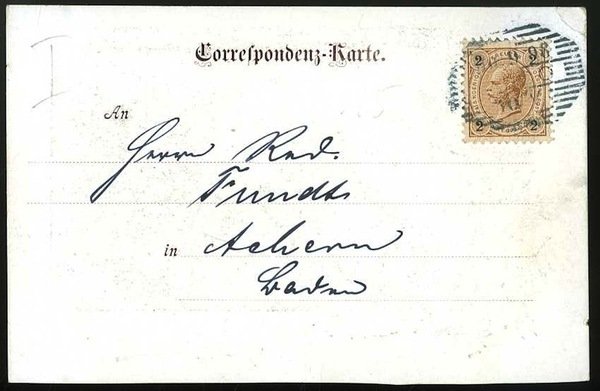 Correspondenz-Karte.
2 2
98
An
Herrn Red.
2 2
in Achern
Baden